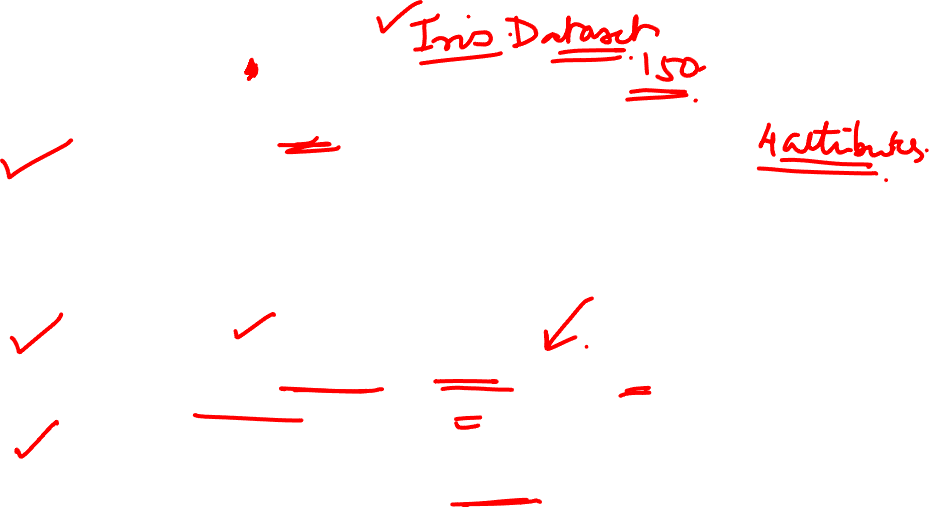 Iris Dataset
150
4 attributes.